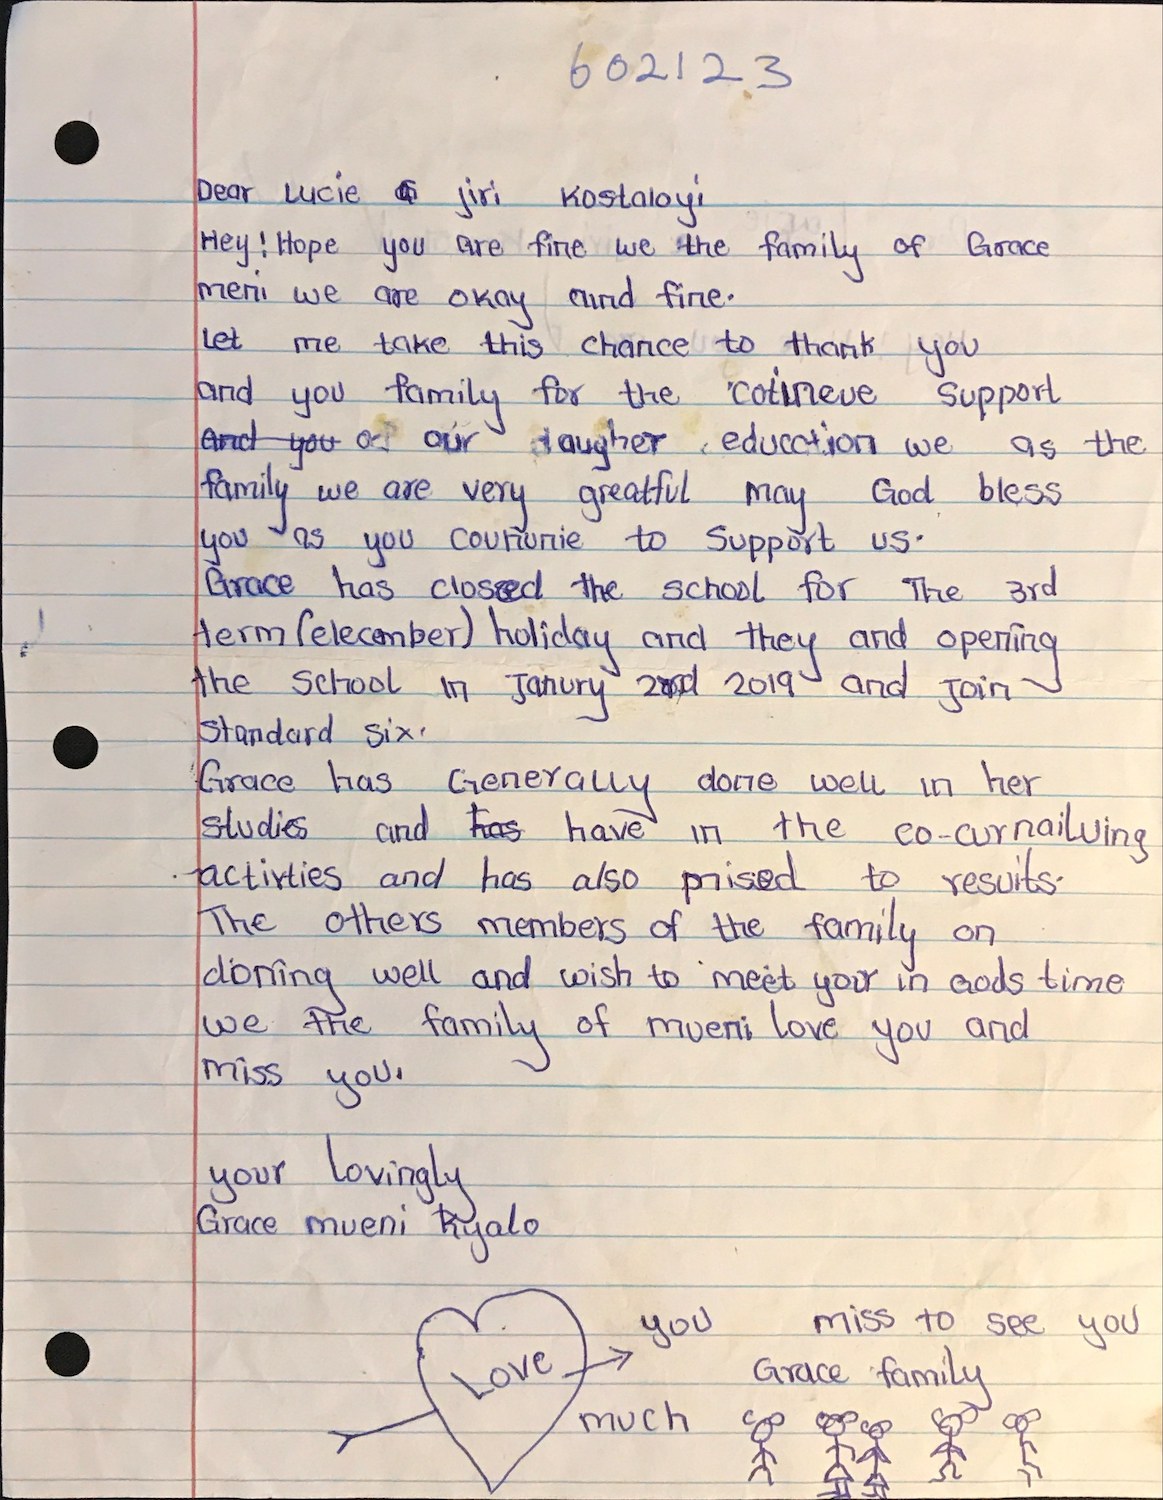 602123
Dear Lucie & jiri Kostaloyi
Hey! Hope you are fine we the family of Grace
meni we are okay and fine.
Let me take this chance to thank you
and you family for the cotineve support
and you of our daugher education we as the
family we are very greatful may God bless
you as you counonie to support us.
Grace has closed the school for The 3rd
term (elecember) holiday and they and opening
the school in Janury 2nd 2019 and join
standard six.
Grace has Generally done well in her
studies and has have in the co-curnailving
activties and has also prised to resuits.
The others members of the family on
donring well and wish to meet your in Gods time
we the family of mueni love you and
miss you.
your lovingly
Grace mueni Kyalo
you miss to see you
Love
Grace family
much